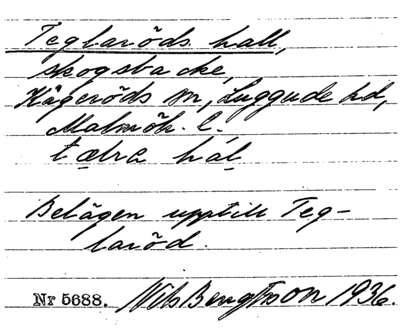 Teglaröds hall,
skogsbacke,
Kågeröds sn, Luggude hd,
Malmöh. l.
hál
Belägen upptill Teg-
laröd.
Nr 5688. Nils Bengtsson 1936.